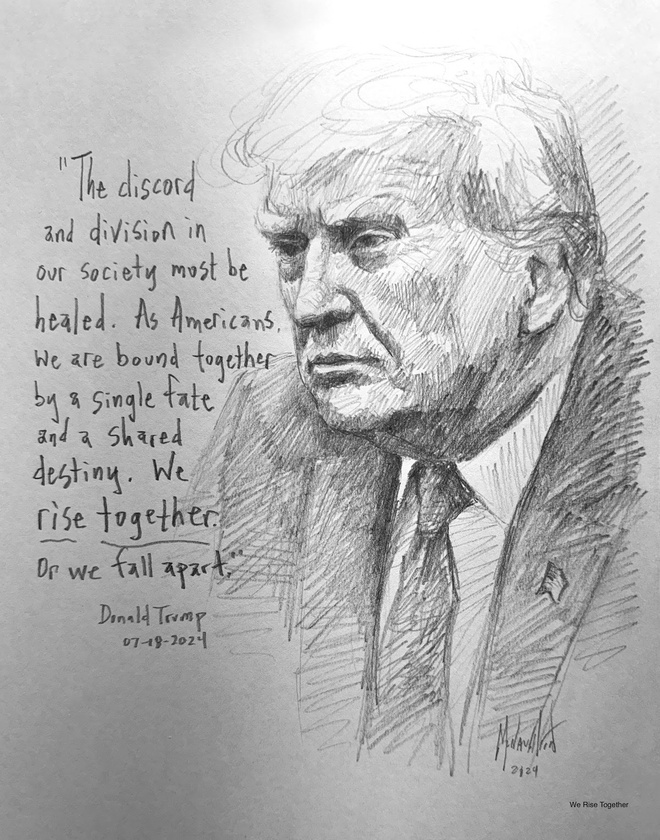 "The discord
and division in
our society must be
healed. As Americans,
we are bound together
by a single fate
and a shared
destiny. We
rise together.
Or we fall apart."
Donald Trump
07-18-2024
2024
We Rise Together